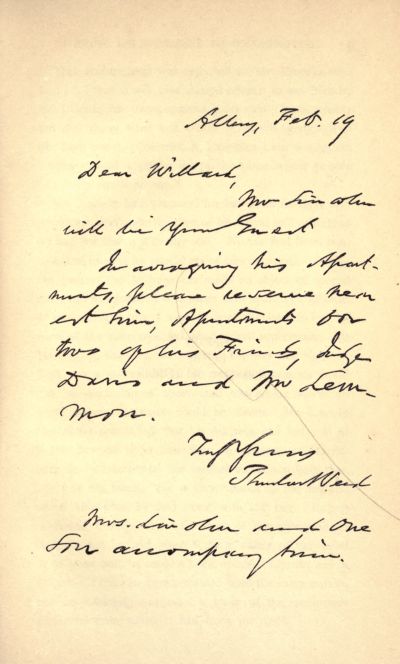 Albany, Feb. 19
Dear Willard,
Mr Lincoln
will be your Guest
In arranging his Apart-
ments, please reserve near
est him, Apartments for
two of his Friends, Judge
Davis and Mr Lem-
mon.
Truly Yours
Thurlow Weed
Mrs. Lincoln and One
Son accompany him.